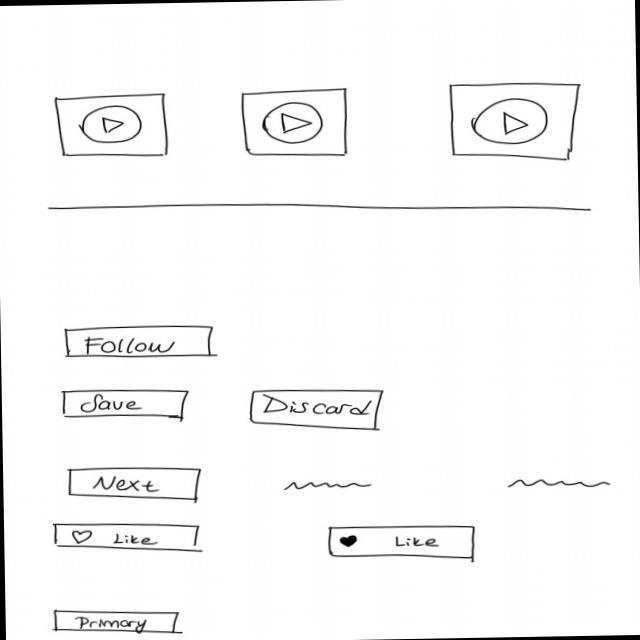 Follow
Save Discard
Next
Like Like
Primary